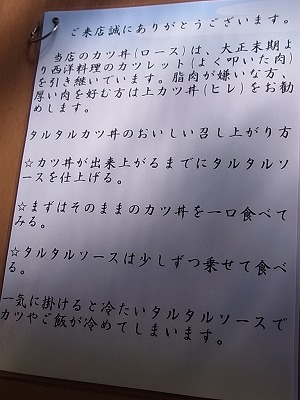 ご来店誠にありがとうございます。
当店のカツ丼(ロース)は、大正末期よ
り西洋料理のカツレット(よく叩いた肉)
を引き継いでいます。脂肉が嫌いな方、
厚い肉を好む方は上カツ丼(ヒレ)をお勧
めします。
タルタルカツ丼のおいしい召し上がり方
☆カツ丼が出来上がるまでにタルタルソ
ースを仕上げる。
☆まずはそのままのカツ丼を一口食べて
みる。
☆タルタルソースは少しずつ乗せて食べ
る。
一気に掛けると冷たいタルタルソースで
カツやご飯が冷めてしまいます。